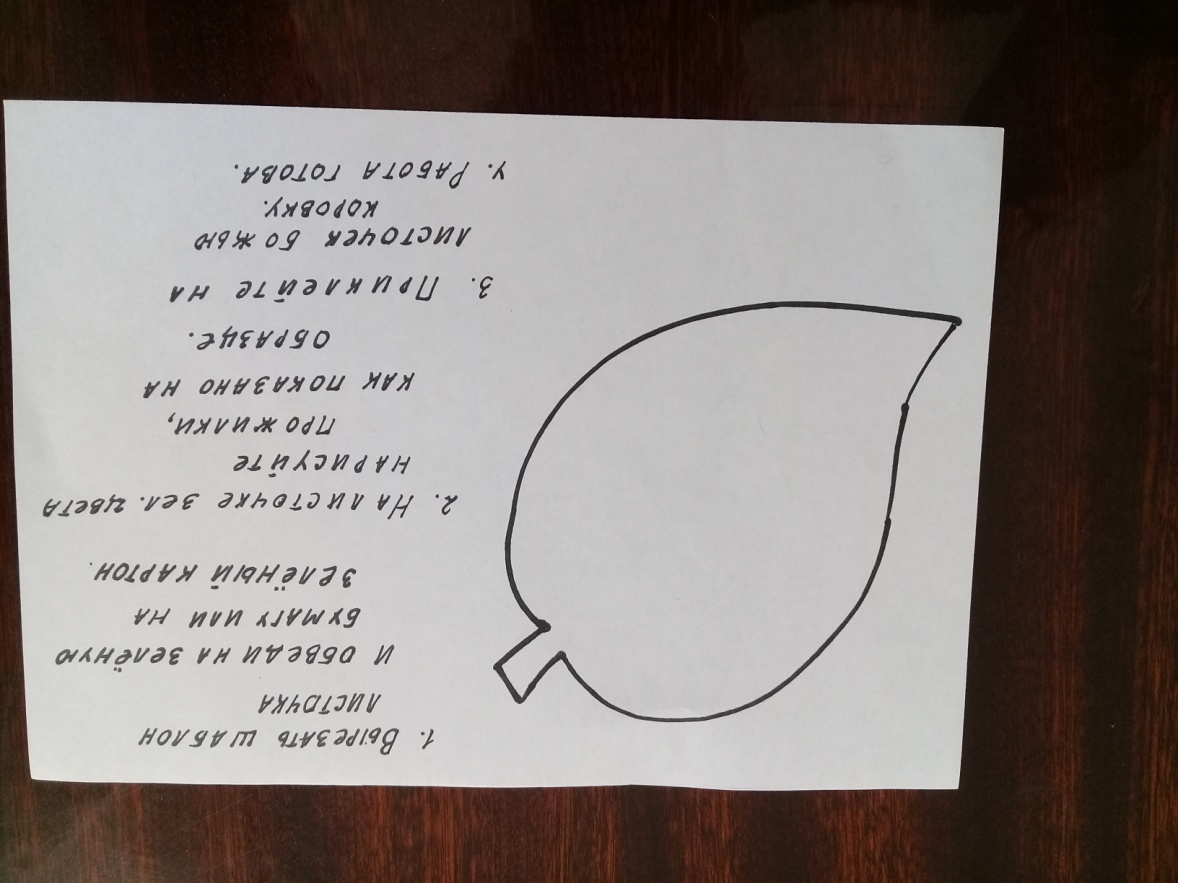 1. Вырезать шаблон
листочка
и обведи на зелёную
бумагу или на
зелёный картон.
2. На листочке зел. цвета
нарисуйте
прожилки,
как показано на
образце.
3. Приклейте на
листочек божью
коровку.
4. Работа готова.